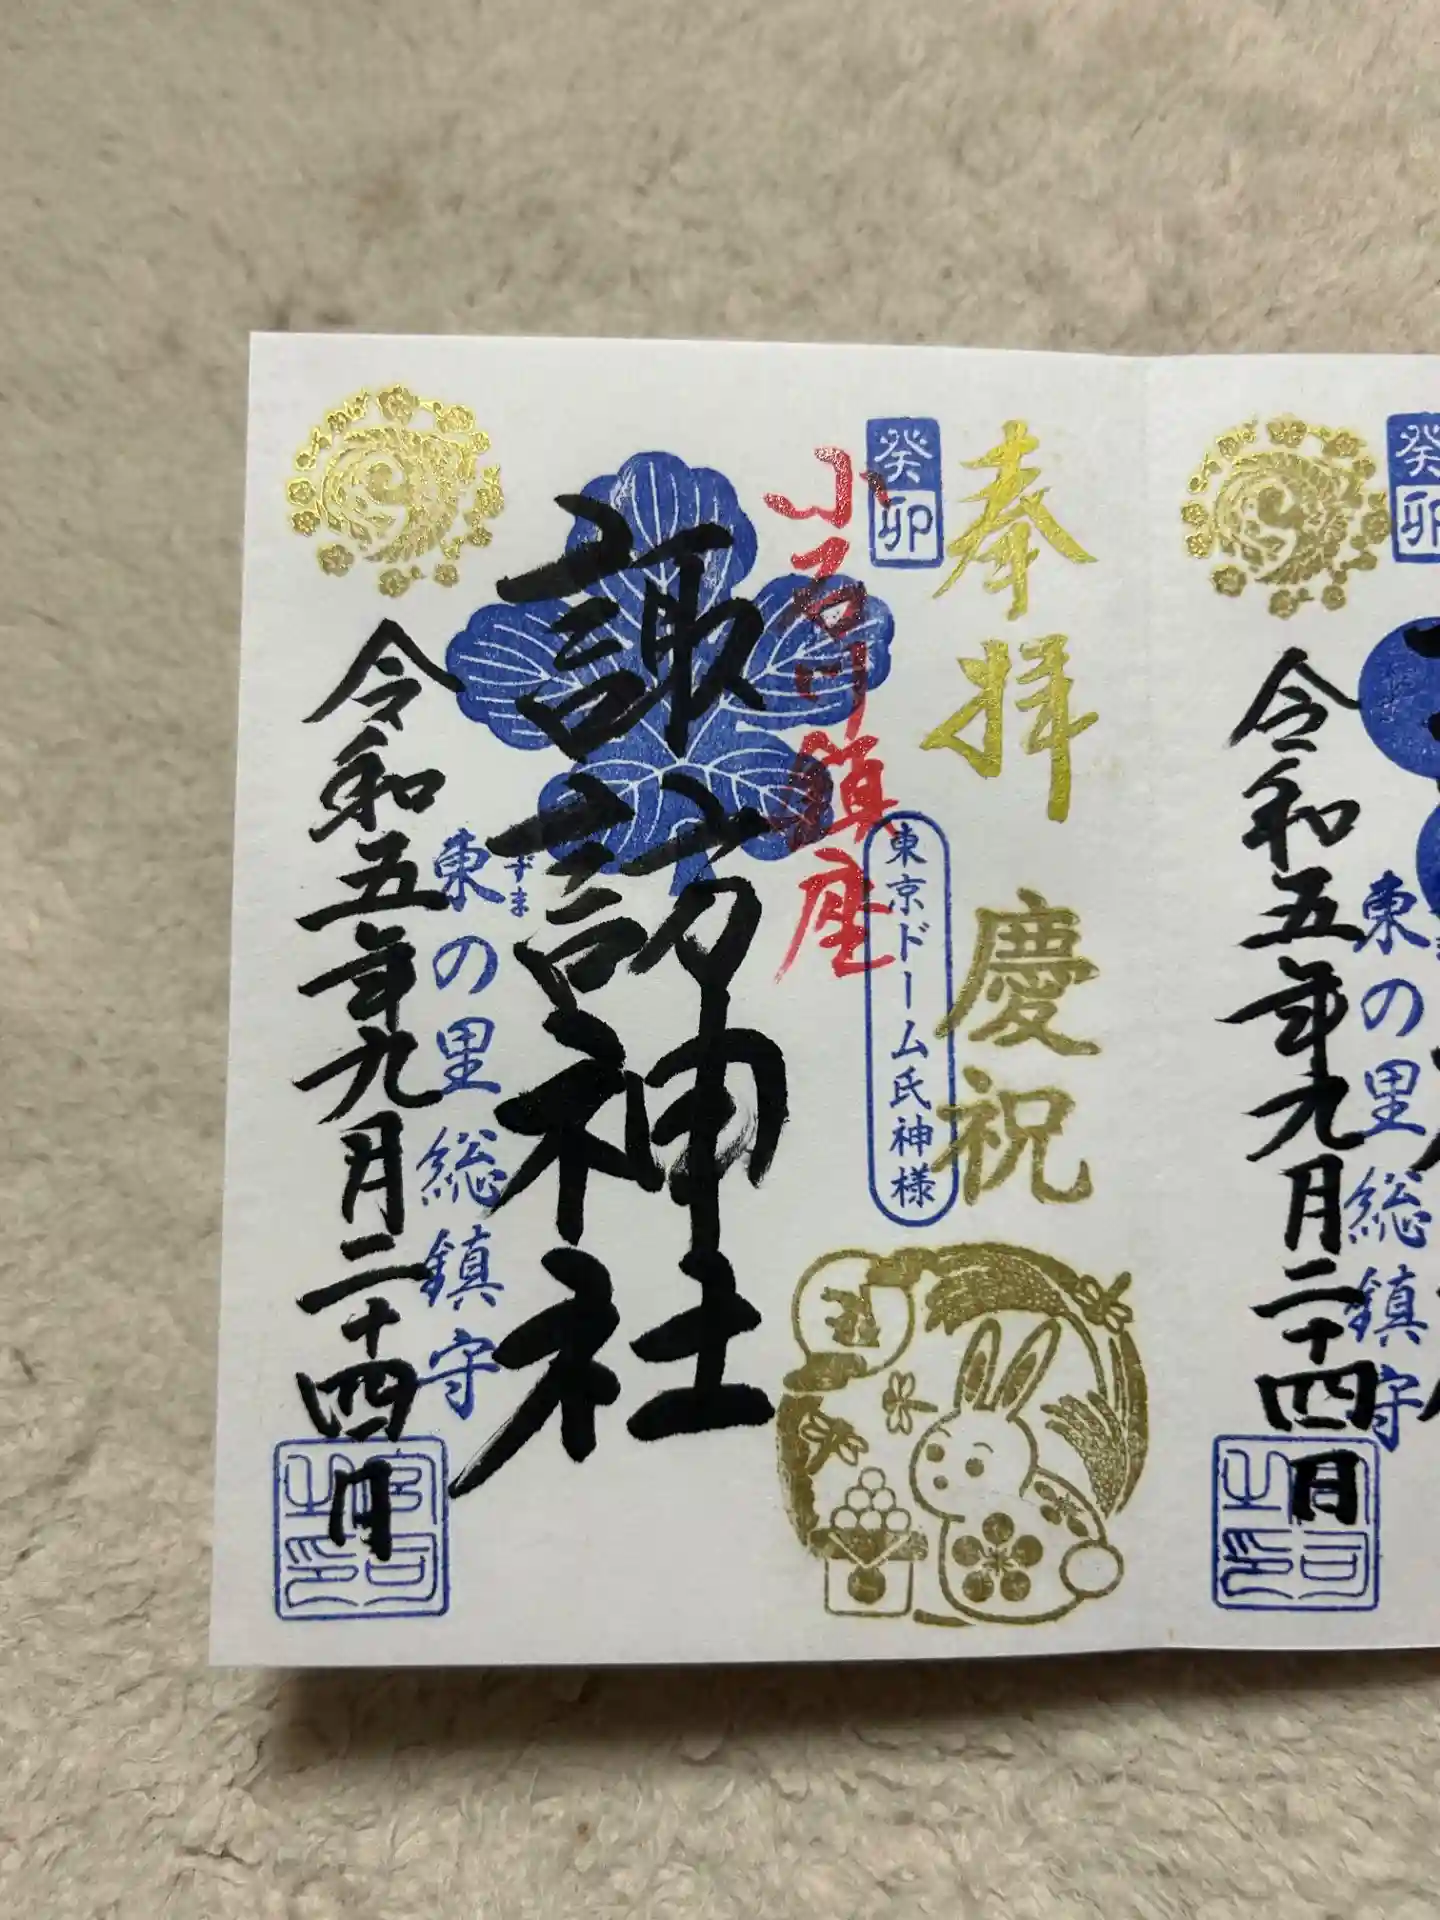 奉拝
慶祝
癸卯
東京ドーム氏神様
小石川鎮座
諏訪神社
東の里総鎮守
令和五年九月二十四日
癸卯
東の里総鎮守
令和五年九月二十四日